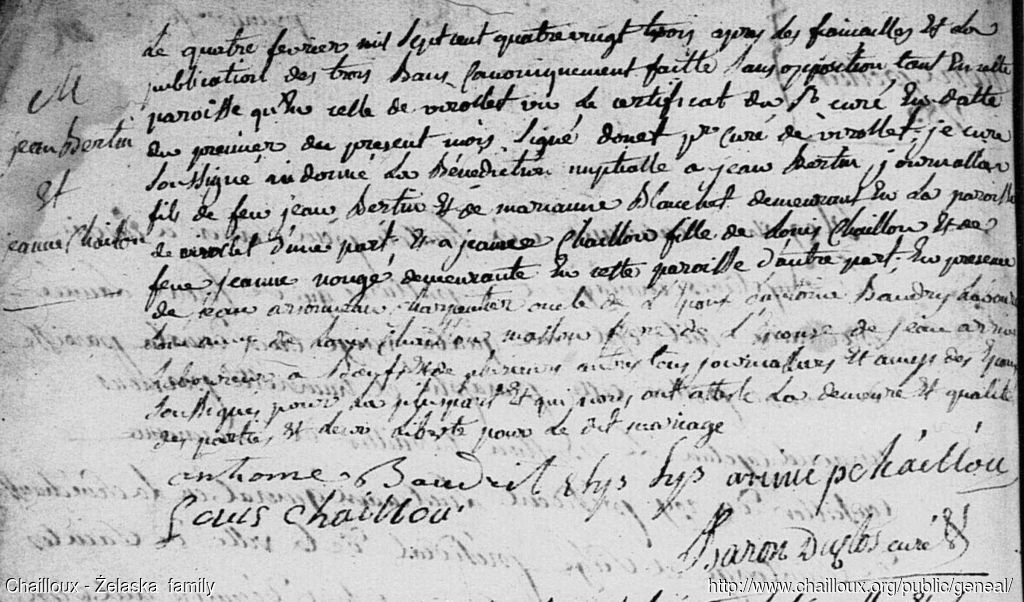 M
jean Bertin
Et
jeanne Chaillou
Le quatre fevrier mil Sept cent quatre vingt trois apres les fiancailles Et La
publication des trois Bans Canoniquement faitte Sans opposition tant En cette
paroisse qu'En celle de virollet vu Le certificat du Sr curé En datte
du premier du present mois Signé donet pr Curé de virollet. je curé
Soussigné ai donné La Bénédiction nuptialle a jean Bertin journallier
fils de feu jean Bertin Et de marianne Blanchet demeurant En La paroisse
de virollet d'une part. Et a jeanne Chaillou fille de Louis Chaillou Et de
feue jeanne nougé demeurante En cette paroisse d'autre part. En presence
de jean charpentier oncle de L'Epoux antoine Baudry
de Louis chaillou masson frere de L'Epouse de jean
Laboureur a Boeufs Et de plusieurs autres tous journalliers Et amys des Epoux
Soussignés pour La pluspart Et qui nous ont attesté La demeure Et qualité
des parties Et Leur Liberté pour Le dit mariage
anthoine Baudrit p chaillou
Louis Chaillou
Baron Duclos curé
Chailloux - Želaska family
http://www.chailloux.org/public/geneal/